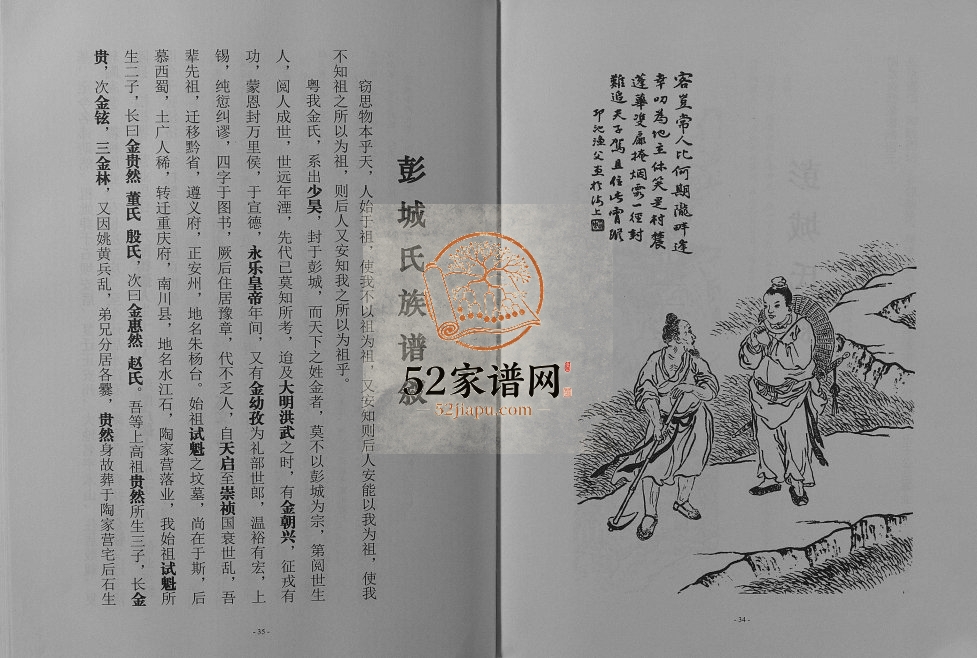 容岂常人比何期陇畔逢
幸叨为地主休笑是村农
蓬华双扉掩烟云一径封
难追夫子驾且住此宵
邛池渔父画於沪上
- 34 -
彭城氏族谱叙
窃思物本乎天，人始于祖，使我不以祖为祖，又安知则后人安能以我为祖，使我
不知祖之所以为祖，则后人又安知我之所以为祖乎。
粤我金氏，系出少昊，封于彭城，而天下之姓金者，莫不以彭城为宗，第阅世生
人，阅人成世，世远年湮，先代已莫知所考，迨及大明洪武之时，有金朝兴，征戎有
功，蒙恩封万里侯，于宣德，永乐皇帝年间，又有金幼孜为礼部世郎，温裕有宏，上
锡，纯愆纠谬，四字于图书，厥后住居豫章，代不乏人，自天启至崇祯国衰世乱，吾
辈先祖，迁移黔省，遵义府，正安州，地名朱杨台。始祖试魁之坟墓，尚在于斯，后
慕西蜀，土广人稀，转迁重庆府，南川县，地名水江石，陶家营落业，我始祖试魁所
生二子，长曰金贵然 董氏 殷氏，次曰金惠然 赵氏。吾等上高祖贵然所生三子，长金
贵，次金铉，三金林，又因姚黄兵乱，弟兄分居各爨，贵然身故葬于陶家营宅后石生
- 35 -
52家谱网
52jiapu.com